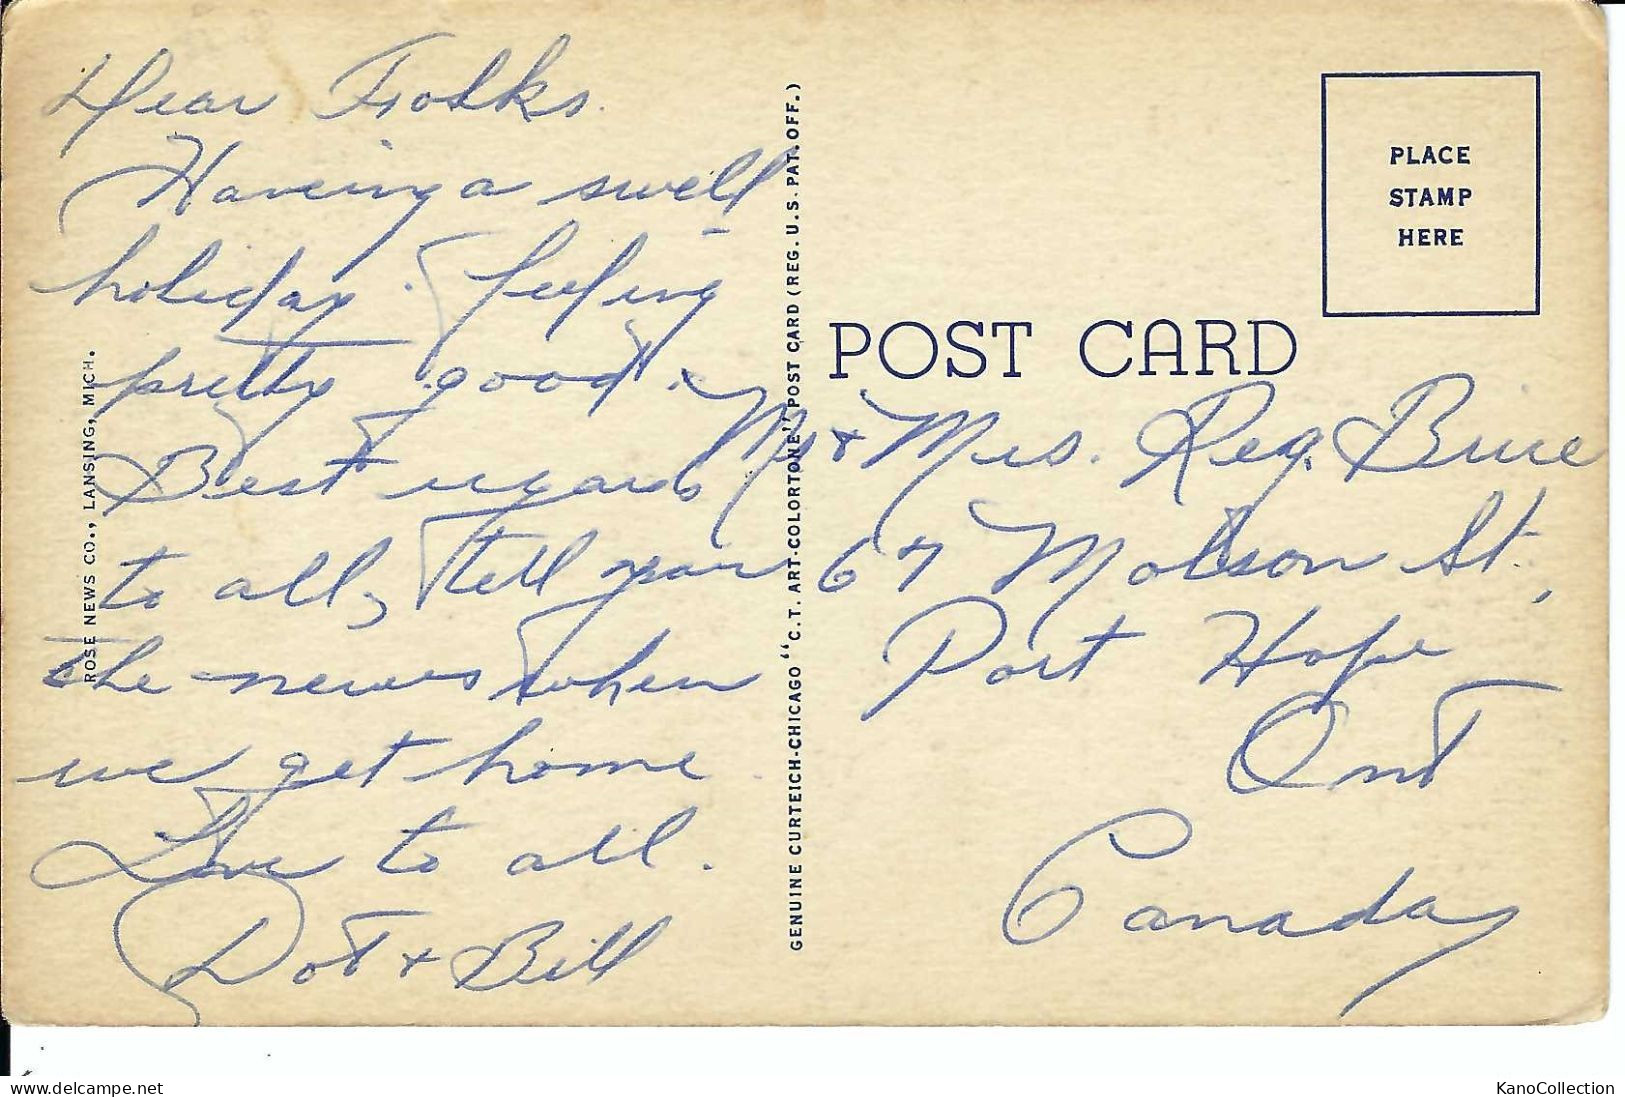 Dear Folks.
Haveing a swell
holiday. feeling
pretty good.
Best regards
to all, tell you
the news when
we get home.
Love to all.
Dot & Bill
ROSE NEWS CO., LANSING, MICH.
GENUINE CURTEICH-CHICAGO "C.T. ART-COLORTONE" POST CARD (REG. U.S. PAT. OFF.)
PLACE
STAMP
HERE
POST CARD
Mr & Mrs. Reg. Brice
67 Molson St.,
Port Hope
Ont
Canada
www.delcampe.net
KanoCollection